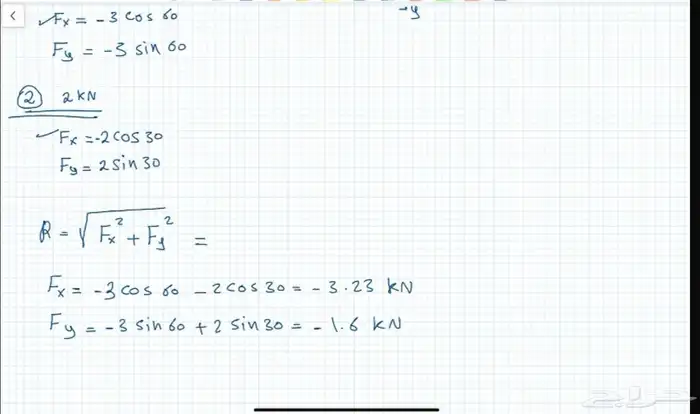 -y
✓Fx = -3 cos 60
Fy = -3 sin 60
② 2 kN
✓Fx = -2 cos 30
Fy = 2 sin 30
R = √Fx² + Fy² =
Fx = -3 cos 60 - 2 cos 30 = -3.23 kN
Fy = -3 sin 60 + 2 sin 30 = -1.6 kN
حراج